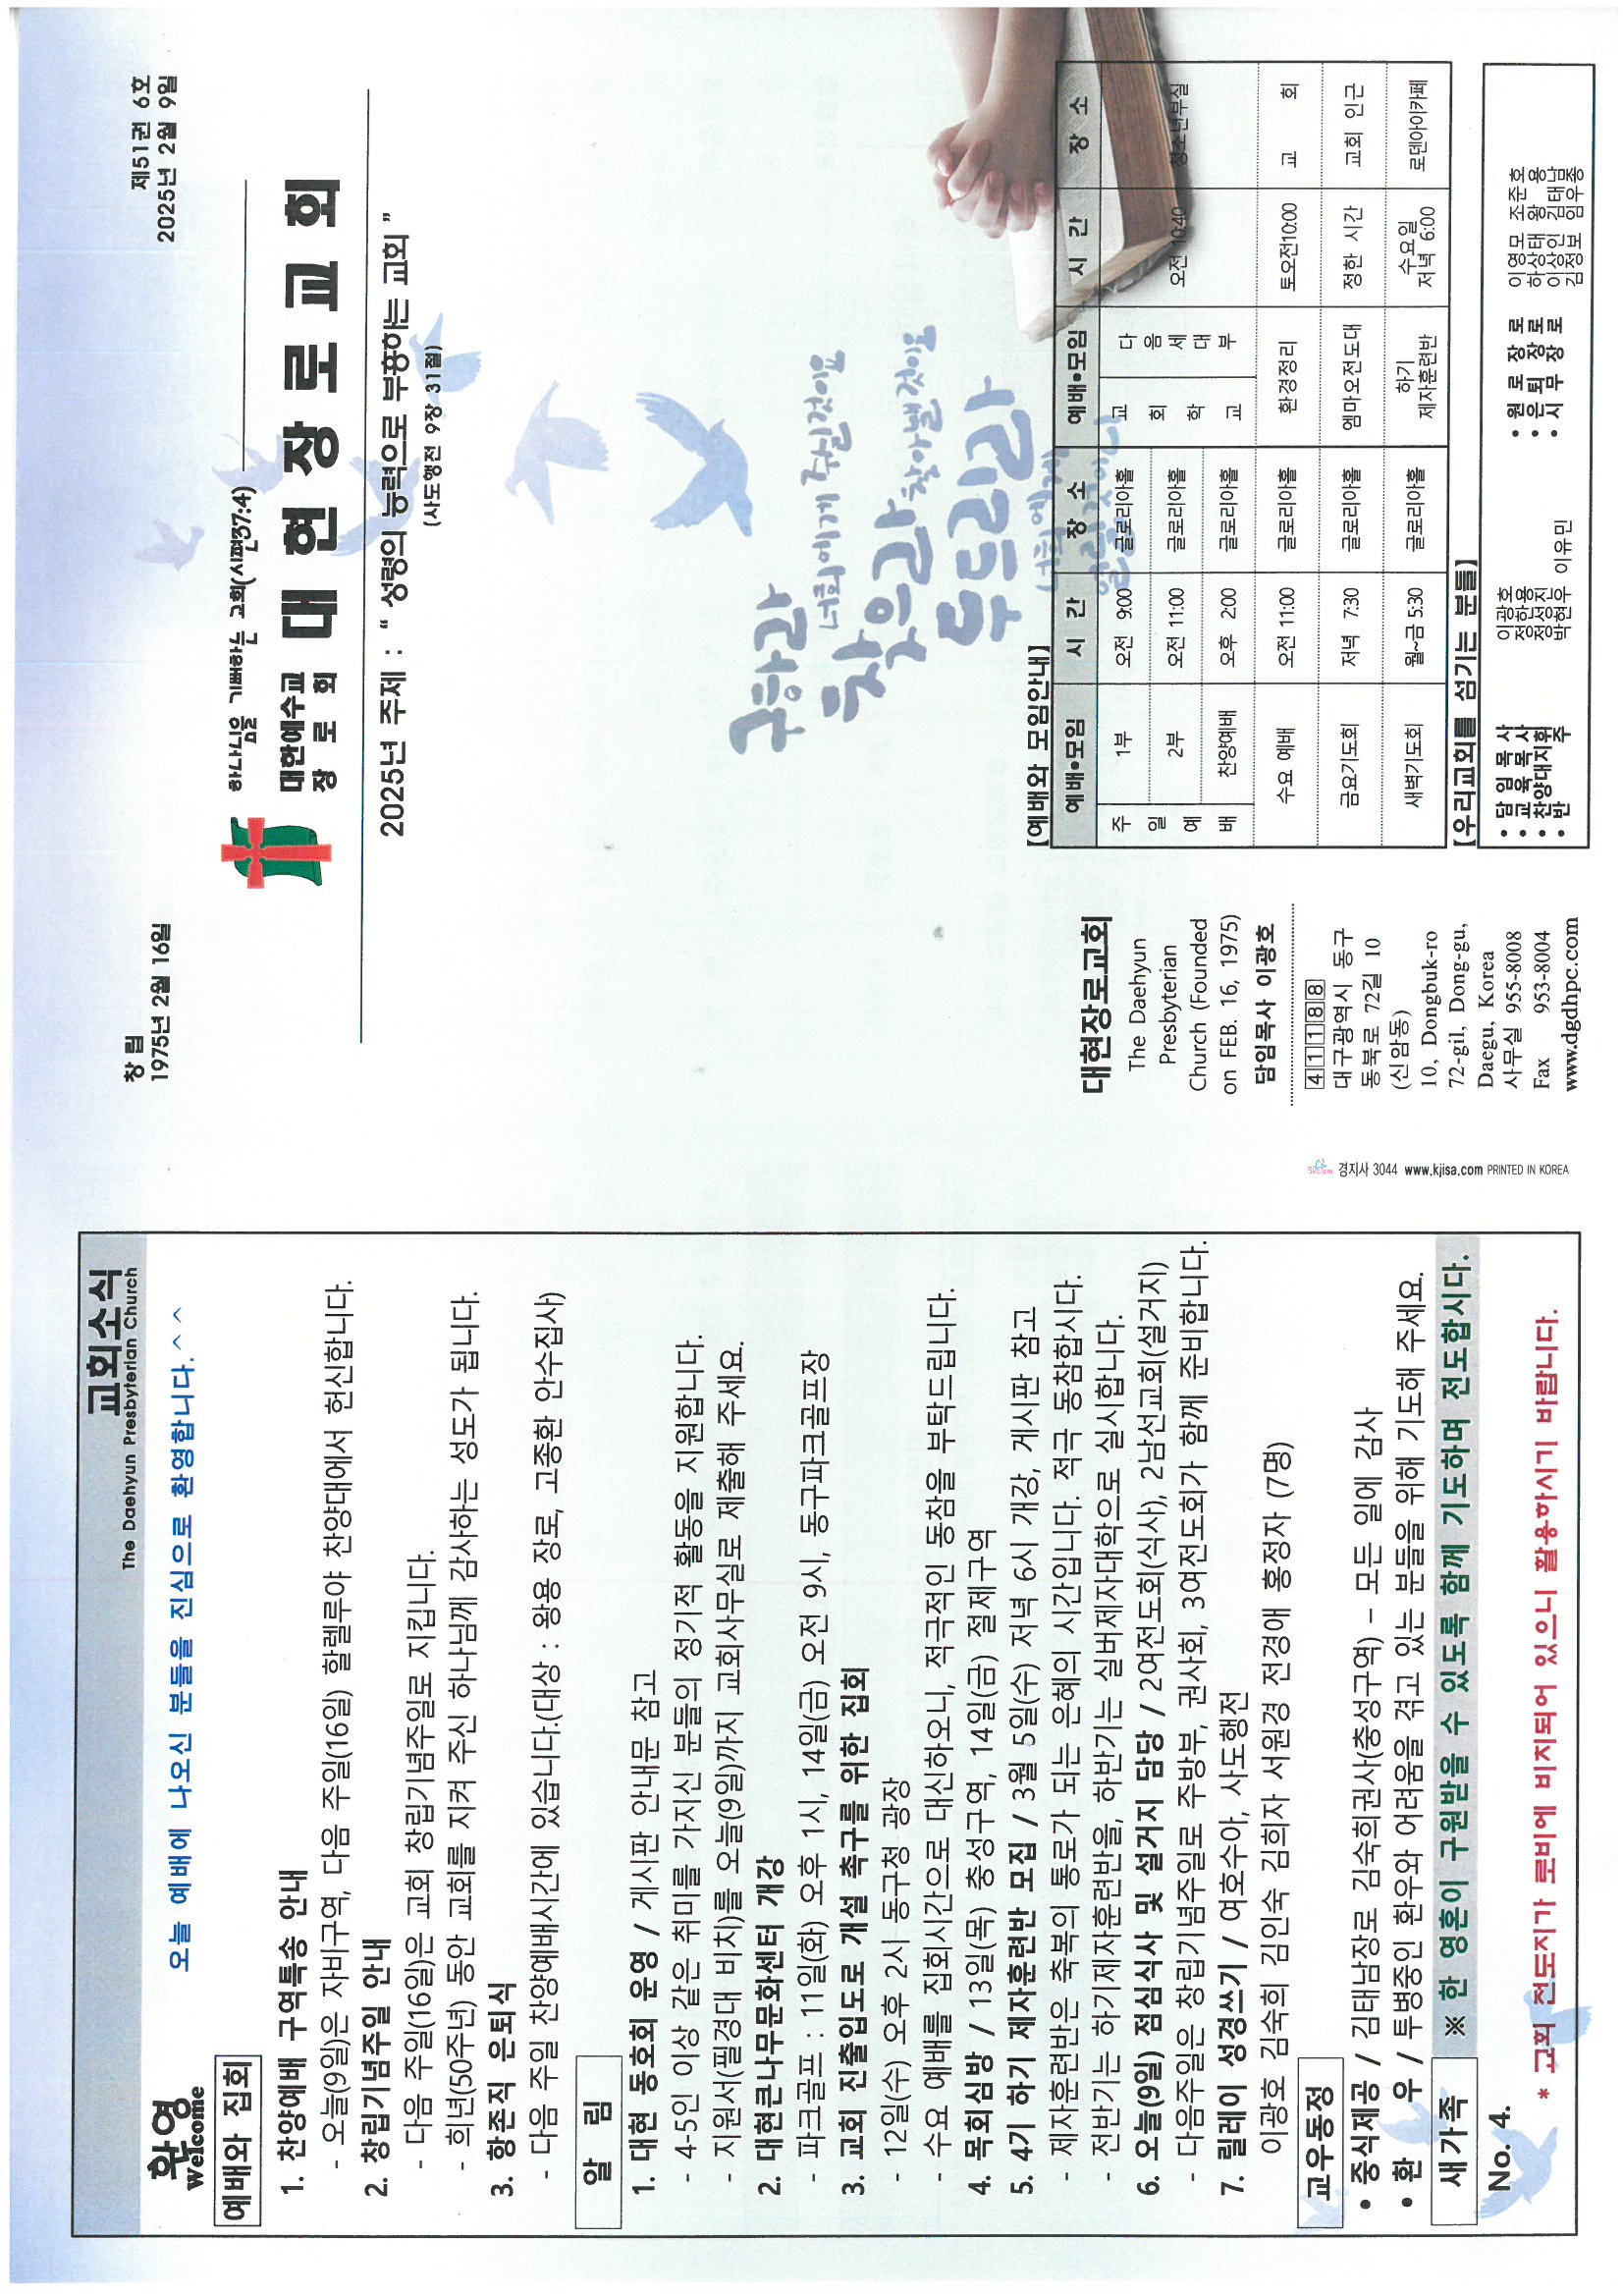 교회소식
The Daehyun Presbyterian Church
환영
Welcome
오늘 예배에 나오신 분들을 진심으로 환영합니다.^^
예배와 집회
1. 찬양예배 구역특송 안내
- 오늘(9일)은 자비구역, 다음 주일(16일) 할렐루야 찬양대에서 헌신합니다.
2. 창립기념주일 안내
- 다음 주일(16일)은 교회 창립기념주일로 지킵니다.
- 희년(50주년) 동안 교회를 지켜 주신 하나님께 감사하는 성도가 됩니다.
3. 항존직 은퇴식
- 다음 주일 찬양예배시간에 있습니다.(대상 : 왕용 장로, 고종환 안수집사)
알 림
1. 대현 동호회 운영 / 게시판 안내문 참고
- 4-5인 이상 같은 취미를 가지신 분들의 정기적 활동을 지원합니다.
- 지원서(필경대 비치)를 오늘(9일)까지 교회사무실로 제출해 주세요.
2. 대현큰나무문화센터 개강
- 파크골프 : 11일(화) 오후 1시, 14일(금) 오전 9시, 동구파크골프장
3. 교회 진출입도로 개설 촉구를 위한 집회
- 12일(수) 오후 2시 동구청 광장
- 수요 예배를 집회시간으로 대신하오니, 적극적인 동참을 부탁드립니다.
4. 목회심방 / 13일(목) 충성구역, 14일(금) 절제구역
5. 4기 하기 제자훈련반 모집 / 3월 5일(수) 저녁 6시 개강, 게시판 참고
- 제자훈련반은 축복의 통로가 되는 은혜의 시간입니다. 적극 동참합시다.
- 전반기는 하기제자훈련반을, 하반기는 실버제자대학으로 실시합니다.
6. 오늘(9일) 점심식사 및 설거지 담당 / 2여전도회(식사), 2남선교회(설거지)
- 다음주일은 창립기념주일로 주방부, 권사회, 3여전도회가 함께 준비합니다.
7. 릴레이 성경쓰기 / 여호수아, 사도행전
이광호 김숙희 김인숙 김희자 서원경 전경애 홍정자 (7명)
교우동정
• 중식제공 / 김태남장로 김숙희권사(충성구역) - 모든 일에 감사
• 환 우 / 투병중인 환우와 어려움을 겪고 있는 분들을 위해 기도해 주세요.
새가족
※ 한 영혼이 구원받을 수 있도록 함께 기도하며 전도합시다.
No. 4.
* 교회 전도지가 로비에 비치되어 있으니 활용하시기 바랍니다.
창 립
1975년 2월 16일
제51권 6호
2025년 2월 9일
하나님을 기뻐하는 교회(시편37:4)
대한예수교
장 로 회
대현장로교회
2025년 주제 : “ 성령의 능력으로 부흥하는 교회 ”
(사도행전 9장 31절)
구하라
너희에게 주실것이요
찾으라
찾아낼것이요
두드리라
대현장로교회
The Daehyun
Presbyterian
Church (Founded
on FEB. 16, 1975)
담임목사 이광호
41188
대구광역시 동구
동북로 72길 10
(신암동)
10, Dongbuk-ro
72-gil, Dong-gu,
Daegu, Korea
사무실 955-8008
Fax 953-8004
www.dgdhpc.com
경지사 3044 www.kjisa.com PRINTED IN KOREA
[예배와 모임안내]
예배•모임 시 간 장 소 예배•모임 시 간 장 소
주일예배 1부 오전 9:00 글로리아홀 교회학교 다음세대부 오전 10:40 청소년부실
2부 오전 11:00 글로리아홀
찬양예배 오후 2:00 글로리아홀
수요 예배 오전 11:00 글로리아홀 환경정리 토오전10:00 교 회
금요기도회 저녁 7:30 글로리아홀 엠마오전도대 정한 시간 교회 인근
새벽기도회 월~금 5:30 글로리아홀 하기 제자훈련반 수요일 저녁 6:00 로덴아이카페
[우리교회를 섬기는 분들]
• 담임목사 이광호
• 교육목사 정하용
• 찬양대지휘 정성진
• 반 주 박현우 이유민
• 원로장로 이영모 조준호
• 은퇴장로 하상태 왕 용
• 시무장로 이상인 김태남
김정보 임우종